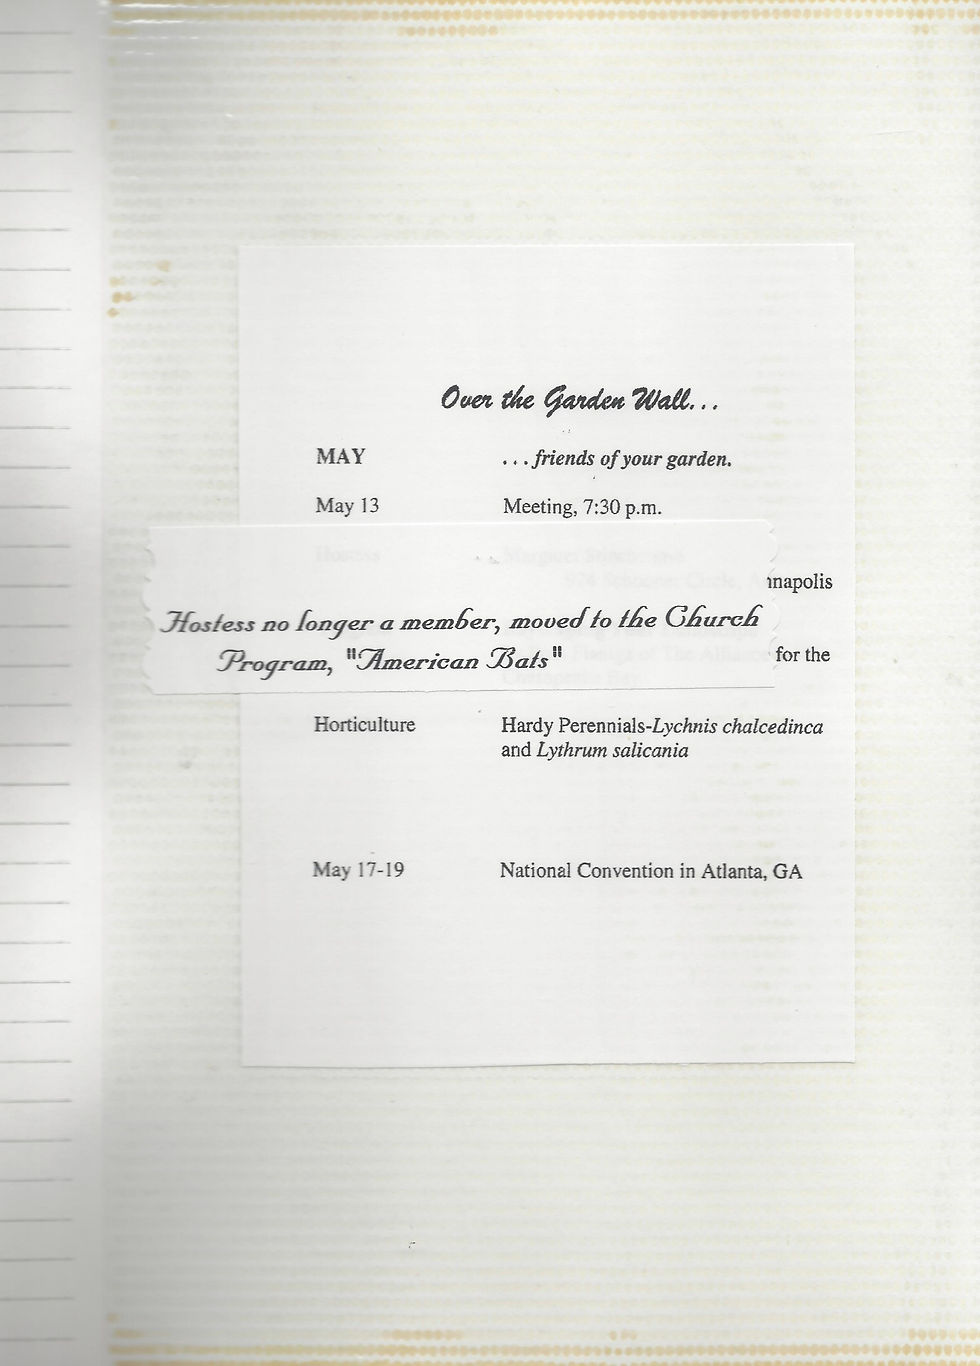 Over the Garden Wall...
MAY ...friends of your garden.
May 13 Meeting, 7:30 p.m.
Hostess
nnapolis
Hostess no longer a member, moved to the Church
Program, "American Bats"
for the
Horticulture Hardy Perennials-Lychnis chalcedinca
and Lythrum salicania
May 17-19 National Convention in Atlanta, GA